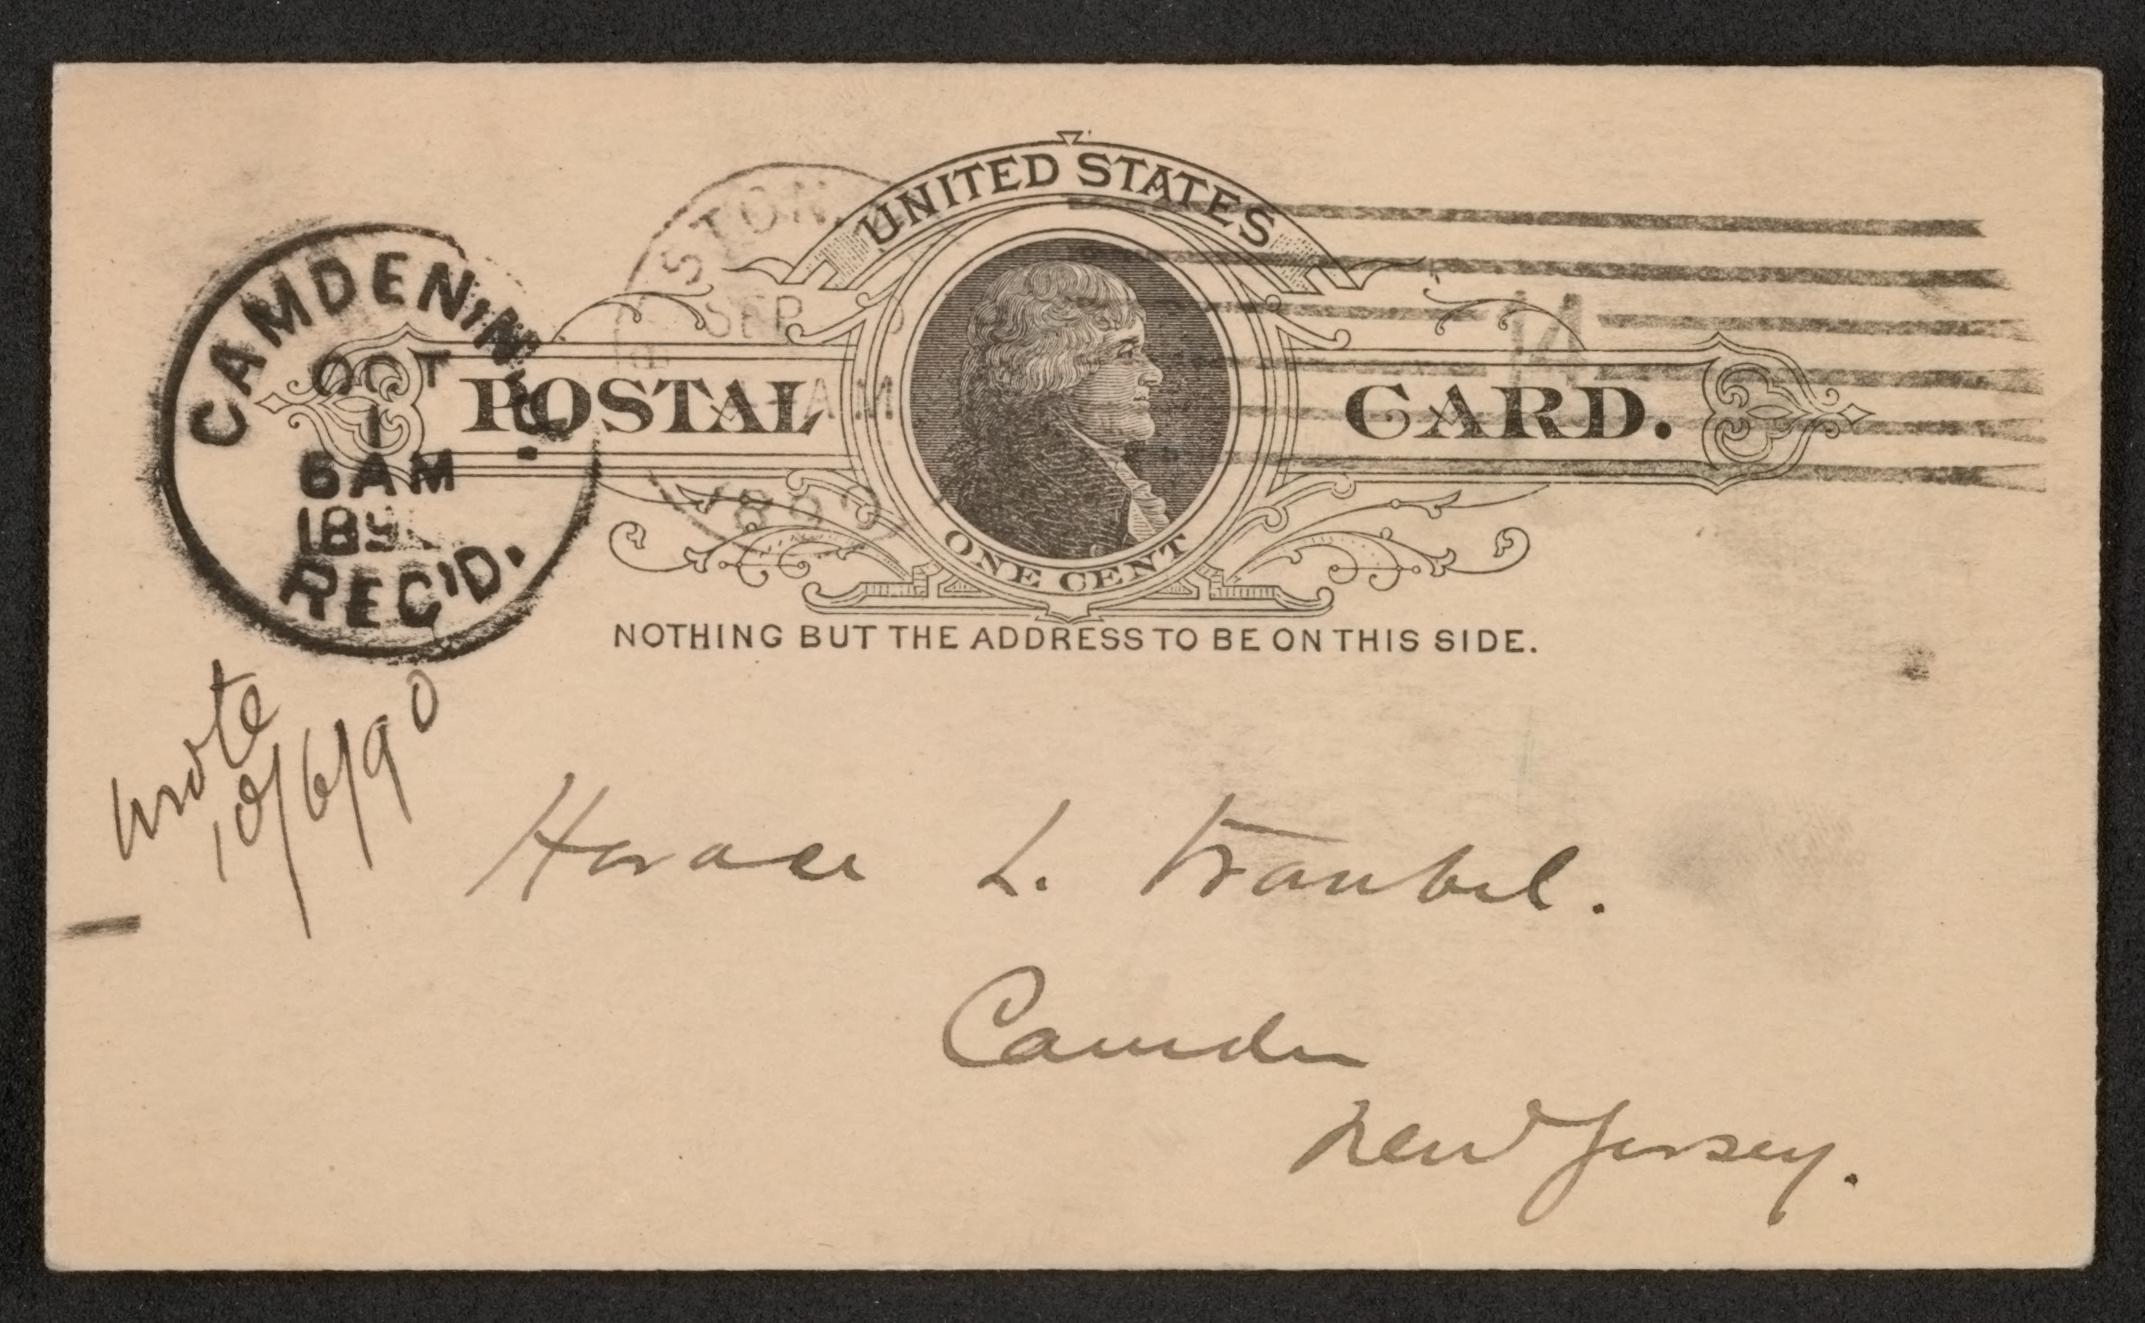 UNITED STATES
POSTAL CARD.
ONE CENT
NOTHING BUT THE ADDRESS TO BE ON THIS SIDE.
CAMDEN, N.J.
OCT
1
6 AM
189
REC'D.
STON
SEP
AM
1890
14
wrote
10/6/90
Horace L. Traubel.
Camden
New Jersey.